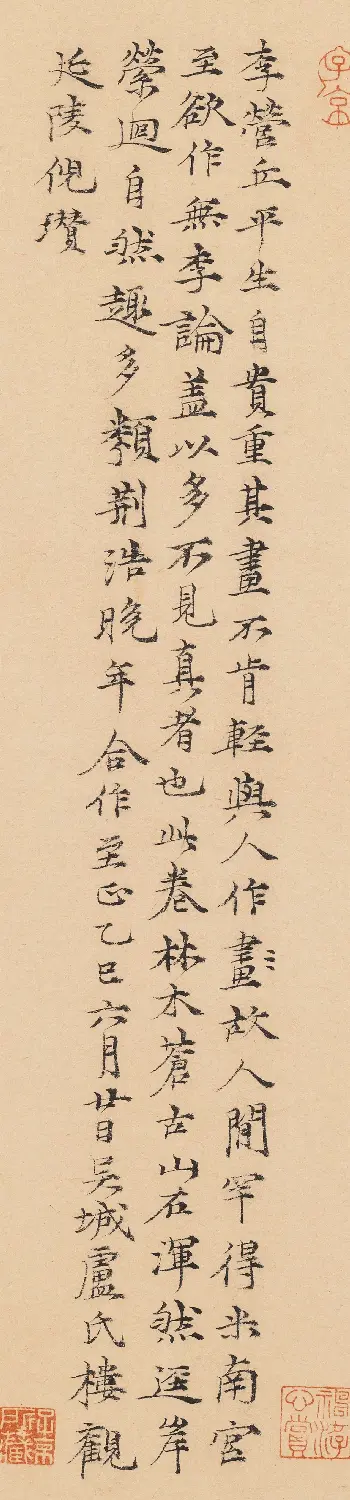 李營丘平生自貴重其畫不肯輕與人作畫故人間罕得米南宮
至欲作無李論蓋以多不見真者也此卷林木蒼古山石渾然逕岸
縈迴自然趣多類荊浩晚年合作至正乙巳六月廿日吳城盧氏樓觀
延陵倪瓚
子京